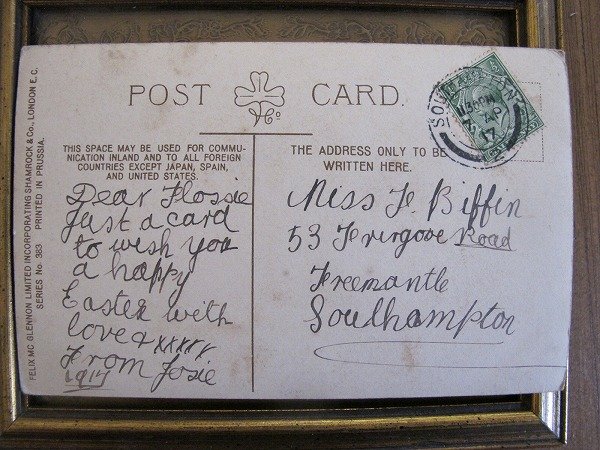 POST CARD.
THIS SPACE MAY BE USED FOR COMMU-
NICATION INLAND AND TO ALL FOREIGN
COUNTRIES EXCEPT JAPAN, SPAIN,
AND UNITED STATES.
Dear Flossie
Just a card
to wish you
a happy
Easter with
love & xxxxx
From Josie
1917
THE ADDRESS ONLY TO BE
WRITTEN HERE.
Miss F. Biffin
53 Road
Freemantle
Southampton
FELIX MC GLENNON LIMITED INCORPORATING SHAMROCK & Co., LONDON E.C.
SERIES No 383 PRINTED IN PRUSSIA.